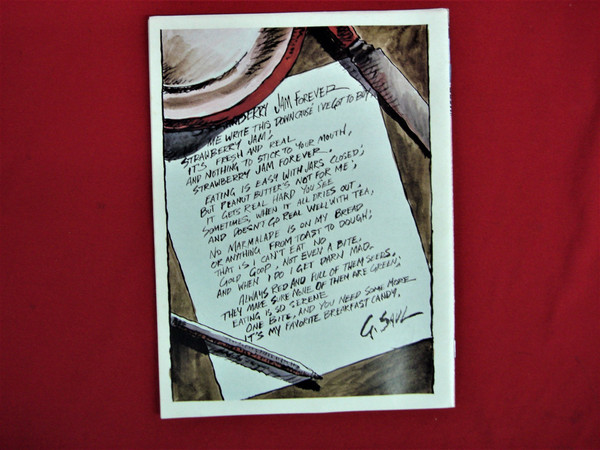 BERRY JAM FOREVER
ME WRITE THIS DOWN CAUSE I'VE GOT TO BUY
STRAWBERRY JAM;
IT'S FRESH AND REAL
AND NOTHING TO STICK TO YOUR MOUTH,
STRAWBERRY JAM FOREVER.
EATING IS EASY WITH JARS CLOSED;
BUT PEANUT BUTTER'S NOT FOR ME;
IT GETS REAL HARD YOU SEE
SOMETIMES, WHEN IT ALL DRIES OUT.
AND DOESN'T GO REAL WELL WITH TEA,
NO MARMALADE IS ON MY BREAD
OR ANYTHING FROM TOAST TO DOUGH;
THAT IS I CAN'T EAT NO
GOLD GOOP, NOT EVEN A BITE,
AND WHEN I DO I GET DARN MAD.
ALWAYS RED AND FULL OF THEM SEEDS,
THEY MADE SURE NONE OF THEM ARE GREEN;
EATING IS SO SERENE
ONE BITE, AND YOU NEED SOME MORE
IT'S MY FAVORITE BREAKFAST CANDY.
G. SAUL